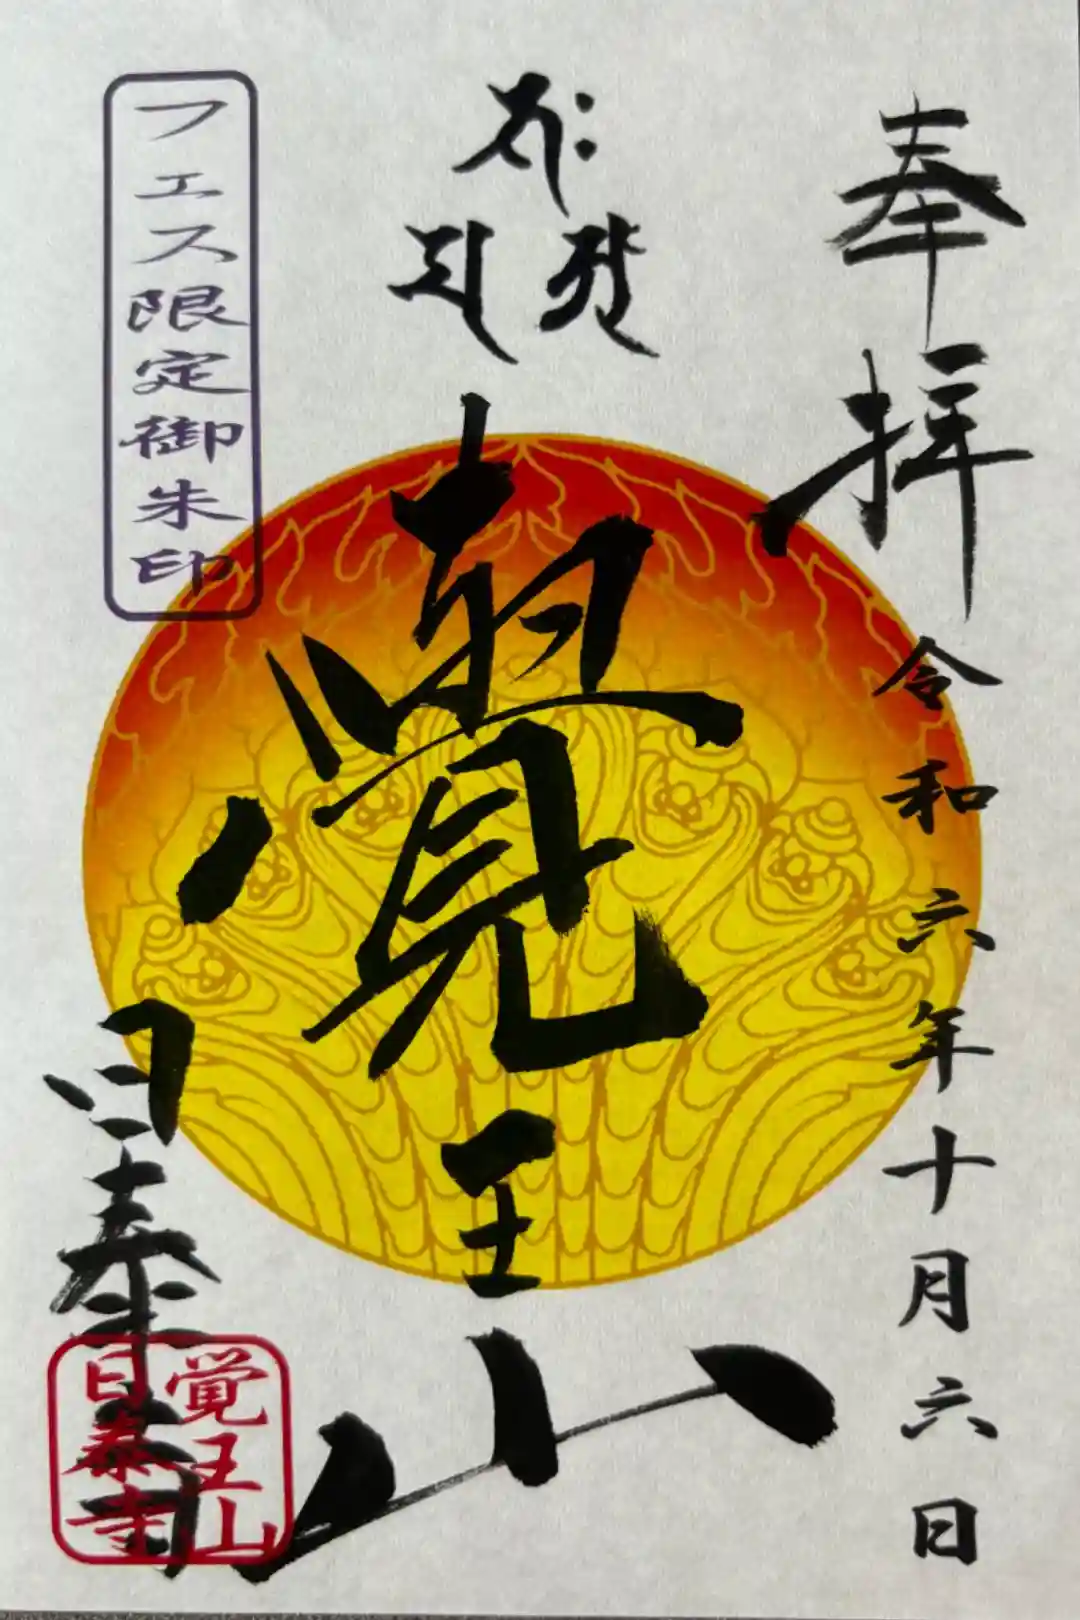 奉拝
令和六年十月六日
覺王山
日泰寺
フェス限定御朱印
覚王山
日泰寺